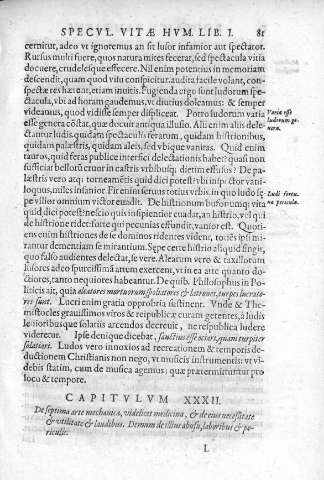 SPECVL. VITÆ HVM. LIB. I. 81
cernitur, adeo vt ignotemus an sit lusor infamior aut spectator.
Rursus multi fuere, quos natura mites fecerat, sed spectacula vitia
docuere, crudelesque effecere. Nil enim potentius in memoriam
descendit, quam quod visu conspicitur. audita facile volant, con-
spectæ res hærent, etiam inuitis. Fugienda ergo sunt ludorum spe-
ctacula, vbi ad horam gaudemus, vt diutius doleamus: & semper
videamus, quod vidisse semper displiceat. Porro ludorum varia
esse genera cōstat, quæ docuit antiqua illusio. Alij enim aliis dele-
ctantur ludis. quidam spectaculis ferarum, quidam histrionibus,
quidam palæstris, quidam aleis, sed vbique vanitas. Quid enim
tauros, quid feras publice interfici delectationis habet? quasi non
sufficiat bellorū cruor in castris vrbibusque detimeffusus? De pa-
læstris vero atque torneamētis quid dici potest? vbi inspector vani-
loquus, nilest infanior. Fit enim seruus totius vrbis, in quo ludo sę-
pe vilior omnium victor euadit. De histrionum bufonumque vita
quid dici potest? nescio quis insipientior euadat, an histrio, vel qui
de histrione ridet: stulte qui pecunias effundit, vanior est. Quoti-
ens enim histriones de se dominos ridentes vident, toties ipsi mi-
rantur dementiam se mirantium. Sępe certe histrio aliquid fingit,
quo falso audientes delectat, se vere. Alearum vero & taxillorum
lusores adeo spurcissima artem exercent, vt in ea arte quanto do-
ctiores, tanto nequiores habeantur. De quib. Philosophus in Po-
liticis ait, quia aleatores mortuorum spoliatores & latrones, turpes lucrato-
res sunt. Lucri enim gratia opprobria sustinent. Vnde & The-
mistocles grauissimos viros & reipublicæ curam gerentes, à ludis
leuioribusque solariis accendos decreuit, ne respublica ludere
videretur. Ipse denique dicebat, sanctius esse ociari, quam turpiter
solatiari. Ludos vero innoxios ad recreationem & temporis de-
ductionem Christianis non nego, vt musicis instrumentis: vt vi-
debis statim, cum de musica agemus: quæ prætermittuntur pro
loco & tempore.
Varia esse
ludorum ge-
nera.
Ludi
na pericula.
CAPITVLVM XXXII.
De septima arte mechanica, videlicet medicina, & de eius necessitate
& vtilitate & laudibus. Demum de illius abusu, laboribus & pe-
riculis.
L